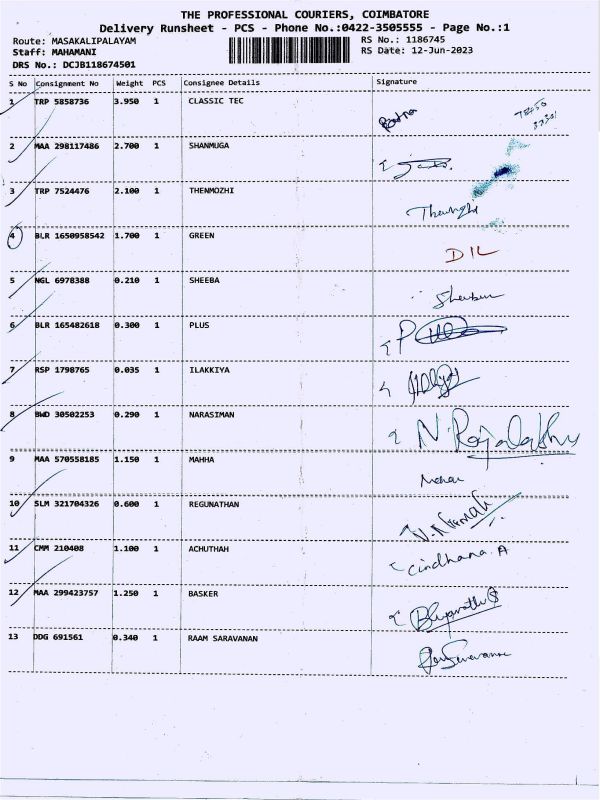 THE PROFESSIONAL COURIERS, COIMBATORE
Delivery Runsheet - PCS - Phone No.:0422-3505555 - Page No.:1
Route: MASAKALIPALAYAM RS No.: 1186745
Staff: MAHAMANI RS Date: 12-Jun-2023
DRS No.: DCJB118674501
S No Consignment No Weight PCS Consignee Details Signature
1 TRP 5858736 3.950 1 CLASSIC TEC
2 MAA 298117486 2.700 1 SHANMUGA
3 TRP 7524476 2.100 1 THENMOZHI
4 BLR 1650958542 1.700 1 GREEN DIL
5 NGL 6978388 0.210 1 SHEEBA
6 BLR 165482618 0.300 1 PLUS
7 RSP 1798765 0.035 1 ILAKKIYA
8 BWD 30502253 0.290 1 NARASIMAN N. Rajalakshu
9 MAA 570558185 1.150 1 MAHHA
10 SLM 321704326 0.600 1 REGUNATHAN
11 CMM 210408 1.100 1 ACHUTHAH Cindhana. A
12 MAA 299423757 1.250 1 BASKER
13 DDG 691561 0.340 1 RAAM SARAVANAN